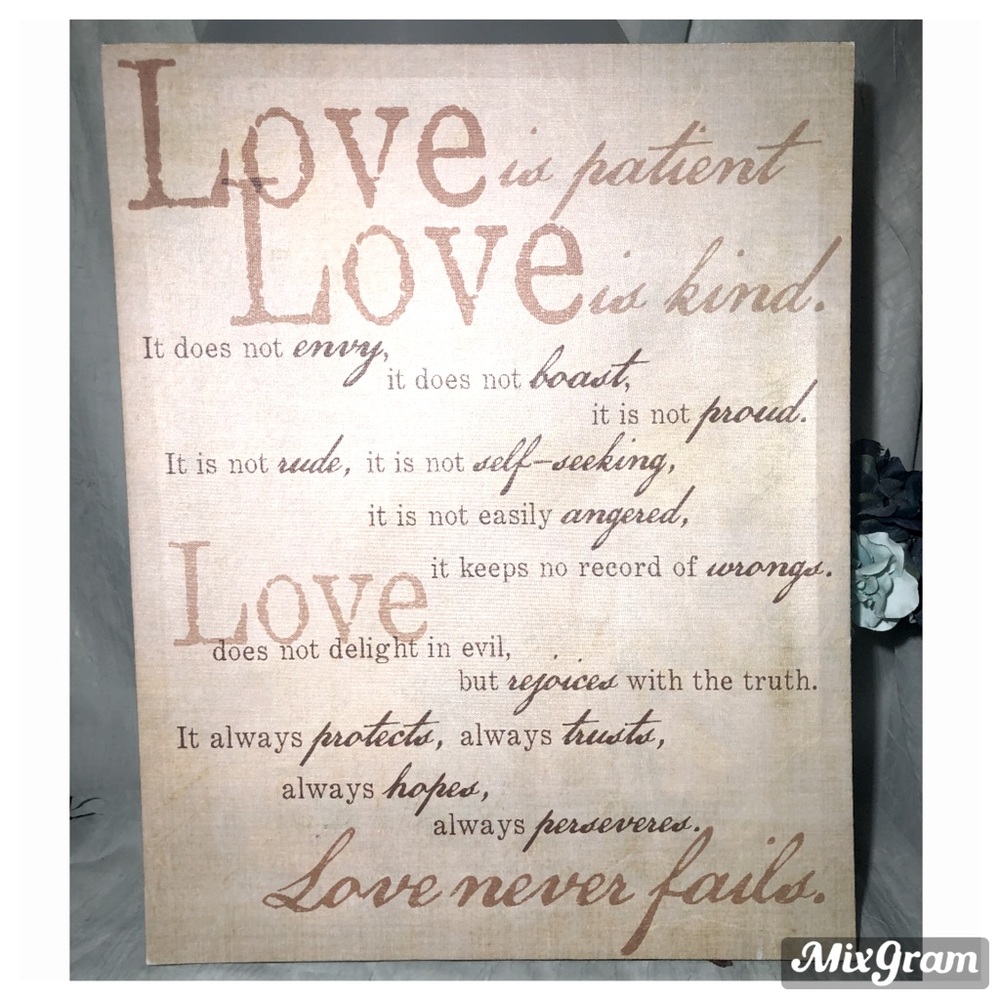 Love is patient
Love is kind.
It does not envy,
it does not boast,
it is not proud.
It is not rude, it is not self-seeking,
it is not easily angered,
it keeps no record of wrongs.
Love
does not delight in evil,
but rejoices with the truth.
It always protects, always trusts,
always hopes,
always perseveres.
Love never fails.
MixGram